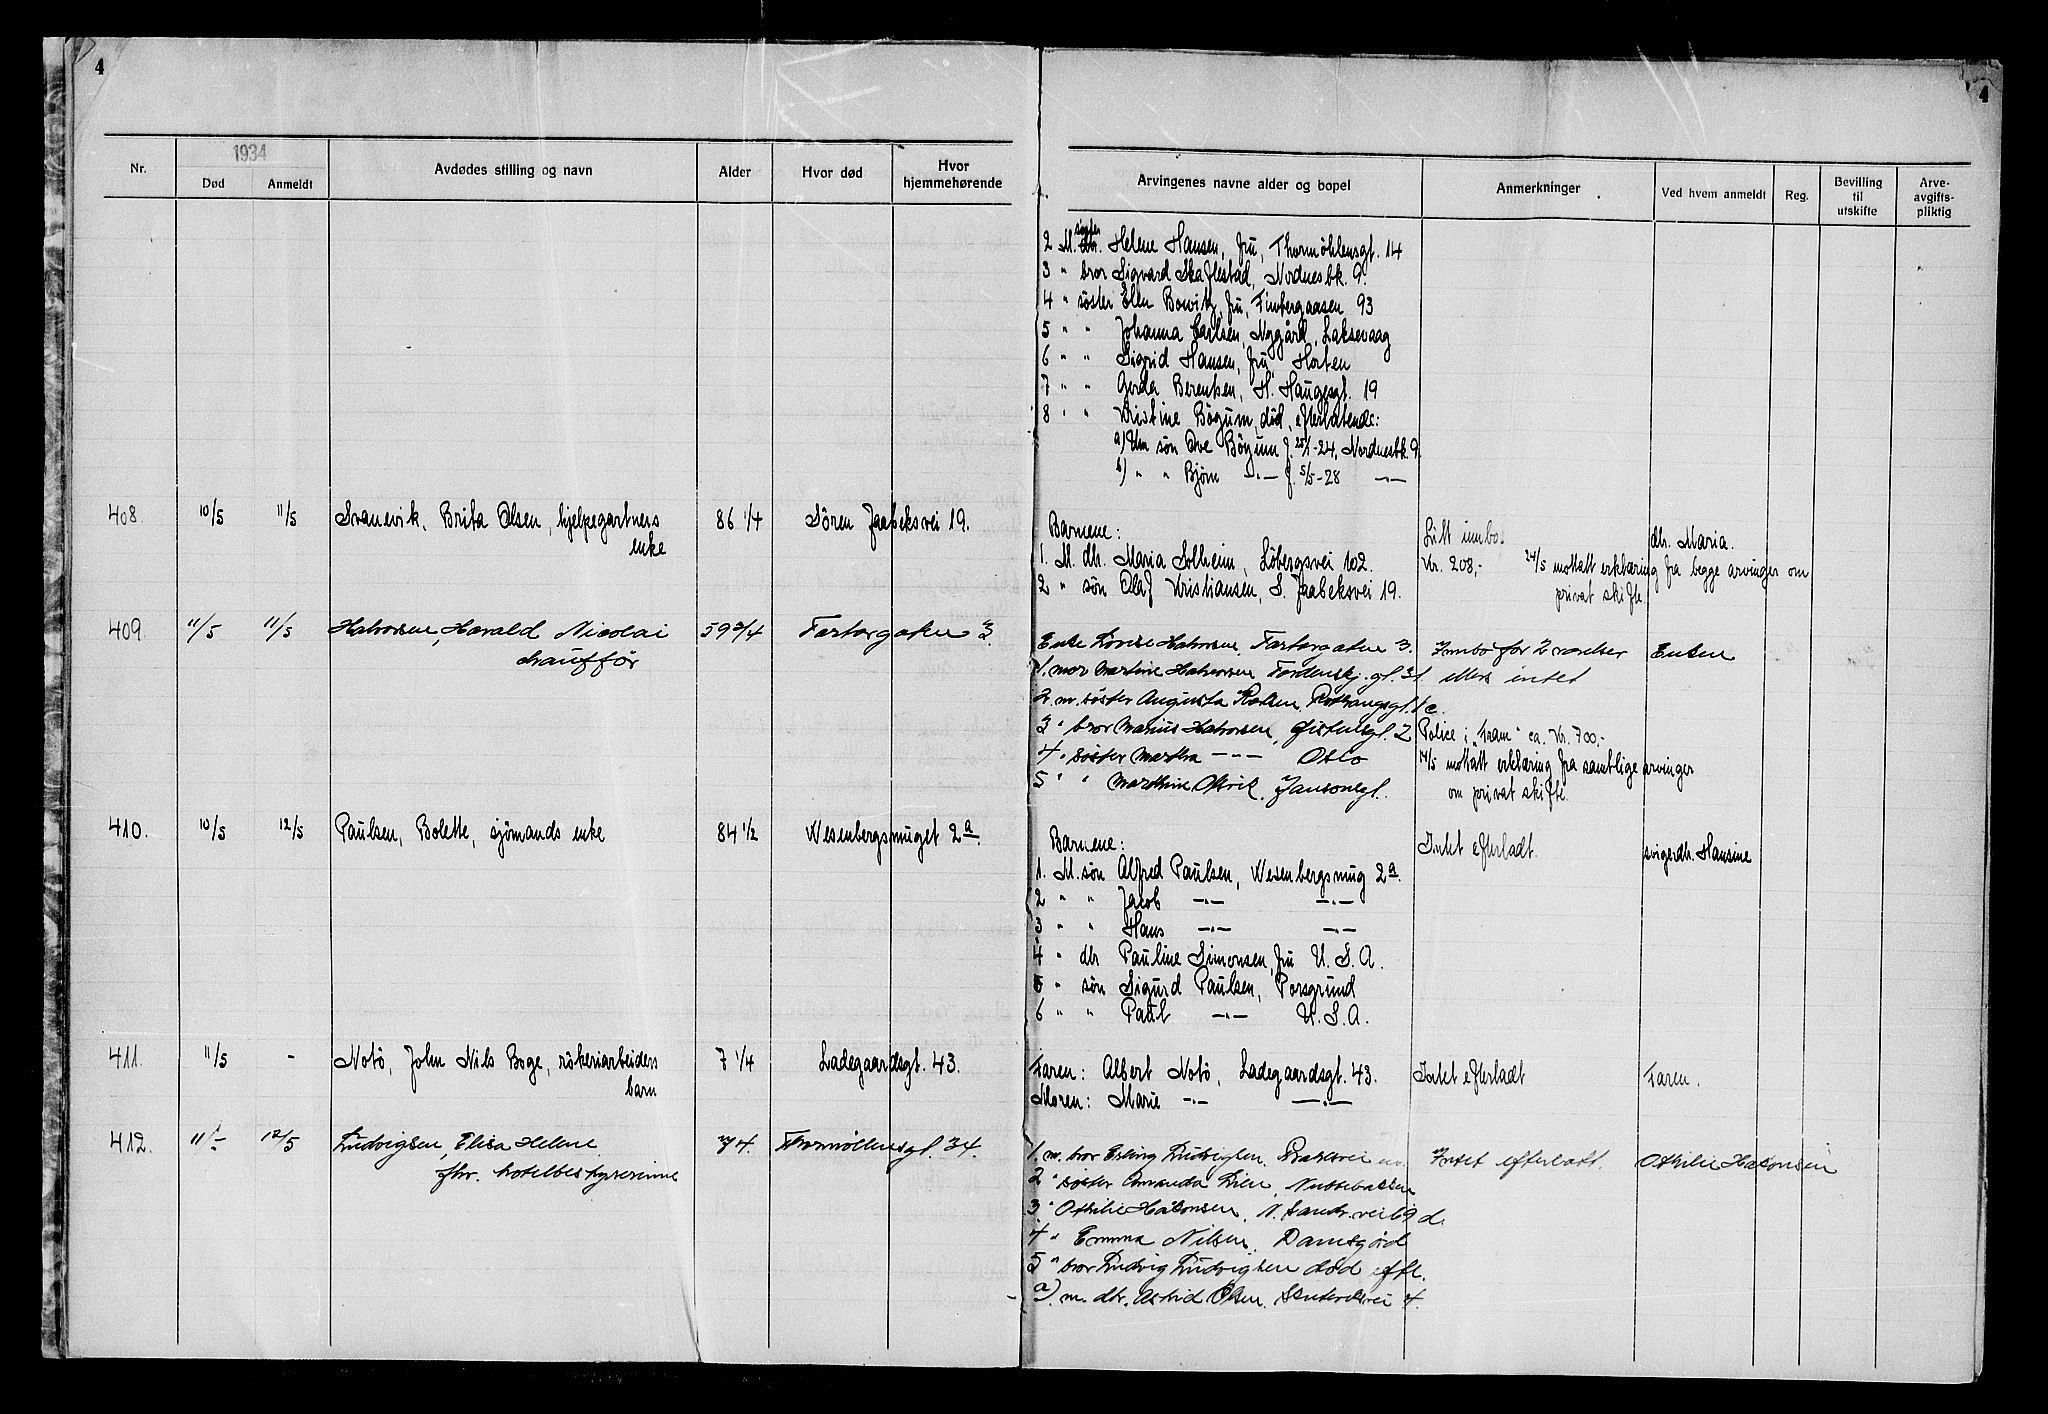 4
4
Nr.
1934
Død
Anmeldt
Avdødes stilling og navn
Alder
Hvor død
Hvor hjemmehørende
Arvingenes navne alder og bopel
Anmerkninger
Ved hvem anmeldt
Reg.
Bevilling til utskifte
Arve-avgifts-pliktig
søster
2 M. Helene Hansen, fru, Thormøhlensgt. 14
3 " bror Sigvard Skaflestad, Nordnesbk. 9.
4 " søster Elen Bowitz, fru, 93
5 " " Johanna Carlsen, Nygård, Laksevaag
6 " " Sigrid Hansen, fru Horten
7 " " Gerda Berentsen, H. Haugesgt. 19
8 " " Kristine Bögum, död, efterlatende:
a) Um sön Ove Bögum f. 25/1-24, Nordnesbk. 9.
b) " " Bjørn -"- f. 5/5-28 -"-
408. 10/5 11/5 Svanevik, Brita Olsen, hjelpegartners enke 86 1/4 Sören Jaabeksvei 19.
Barnene:
1. M. dtr. Maria Solheim, Löbergsvei 102.
2 " sön Olaf Kristiansen, S. Jaabeksvei 19.
Litt innbo
Kr. 208,-
24/5 mottatt erklæring fra begge arvinger om privat skifte.
dtr. Maria.
409. 11/5 11/5 Halvorsen, Harald Nicolai chauffør 59 3/4 Fortorgaten 3
Enke Lovise Halvorsen, Fortorgaten 3.
1. mor Martine Halvorsen gt. 31
2 m. søster Augusta
3 " bror Marius Halvorsen, 2
4 " søster Martha - - - Oslo
5 " " Marthine Jansonsgt.
Innbo for 2 værelser
ellers intet
Police i "Fram" ca. Kr. 700,-
14/5 mottatt erklæring fra samtlige arvinger om privat skifte.
Enken
410. 10/5 12/5 Paulsen, Bolette, sjömands enke 84 1/2 Wesenbergsmuget 2a.
Barnene:
1. M. sön Alfred Paulsen, Wesenbergsmug 2a.
2 " " Jacob -"- -"-
3 " " Hans -"- -"-
4 " dtr Pauline Simonsen, fru U.S.A.
5 " sön Sigurd Paulsen, Porsgrund
6 " " Paul -"- U.S.A.
Intet efterladt.
svigerdtr. Hansine
411. 11/5 - Notö, John Nils Boge, rökeriarbeiders barn 7 1/4 Ladegaardsgt. 43.
Faren: Albert Notö, Ladegaardsgt. 43.
Moren: Marie -"- -"-
Intet efterladt
Faren.
412. 11/- 12/5 Ludvigsen, Elisa Helene fhv. hotelbestyrerinne 74. Thormøllensgt. 34.
1. m. bror Erling Ludvigsen,
2 " søster Amanda Lien, Nattebakken
3 " Othilie Håkonsen, N. Sandv. vei 69 d.
4 " Emma Nilsen, Damsgård
5 " bror Ludvig Ludvigsen død efl.
a) m. dtr. Astrid Olsen, 4.
Intet efterlatt.
Othilie Håkonsen